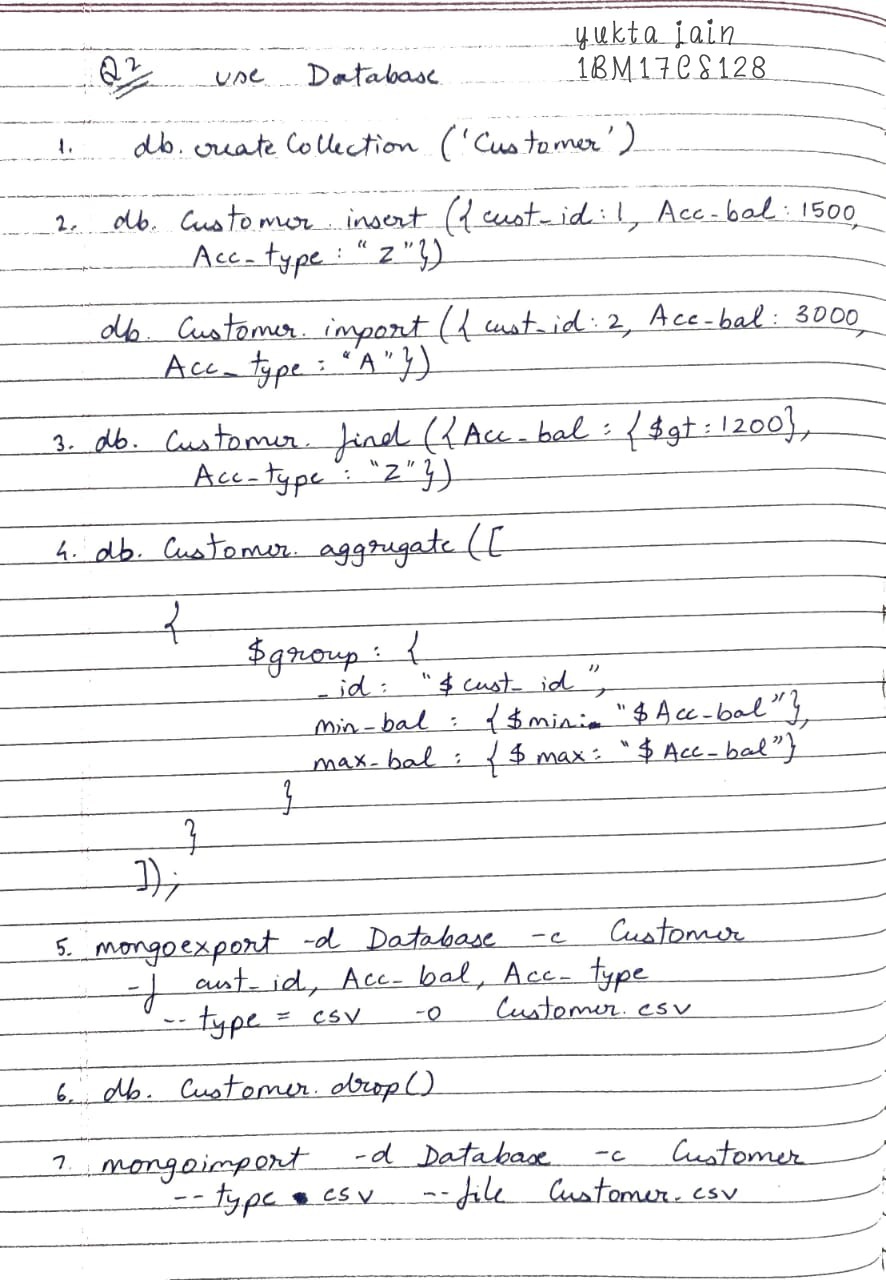 yukta jain
Q2 use Database 1BM17CS128
1. db. create Collection ('Customer')
2. db. Customer. insert ({ cust_id: 1, Acc-bal: 1500,
Acc-type: "Z"})
db. Customer. import ({ cust-id: 2, Acc-bal: 3000,
Acc_type: "A"})
3. db. Customer. find ({Acc-bal: {$gt: 1200},
Acc-type: "Z"})
4. db. Customer. aggregate ([
{
$group: {
_id: "$cust_id",
min-bal: {$min: "$Acc-bal"},
max-bal: {$max: "$Acc-bal"}
}
}
]);
5. mongoexport -d Database -c Customer
-f cust_id, Acc-bal, Acc-type
--type = csv -o Customer.csv
6. db. Customer. drop()
7. mongoimport -d Database -c Customer
--type csv --file Customer.csv